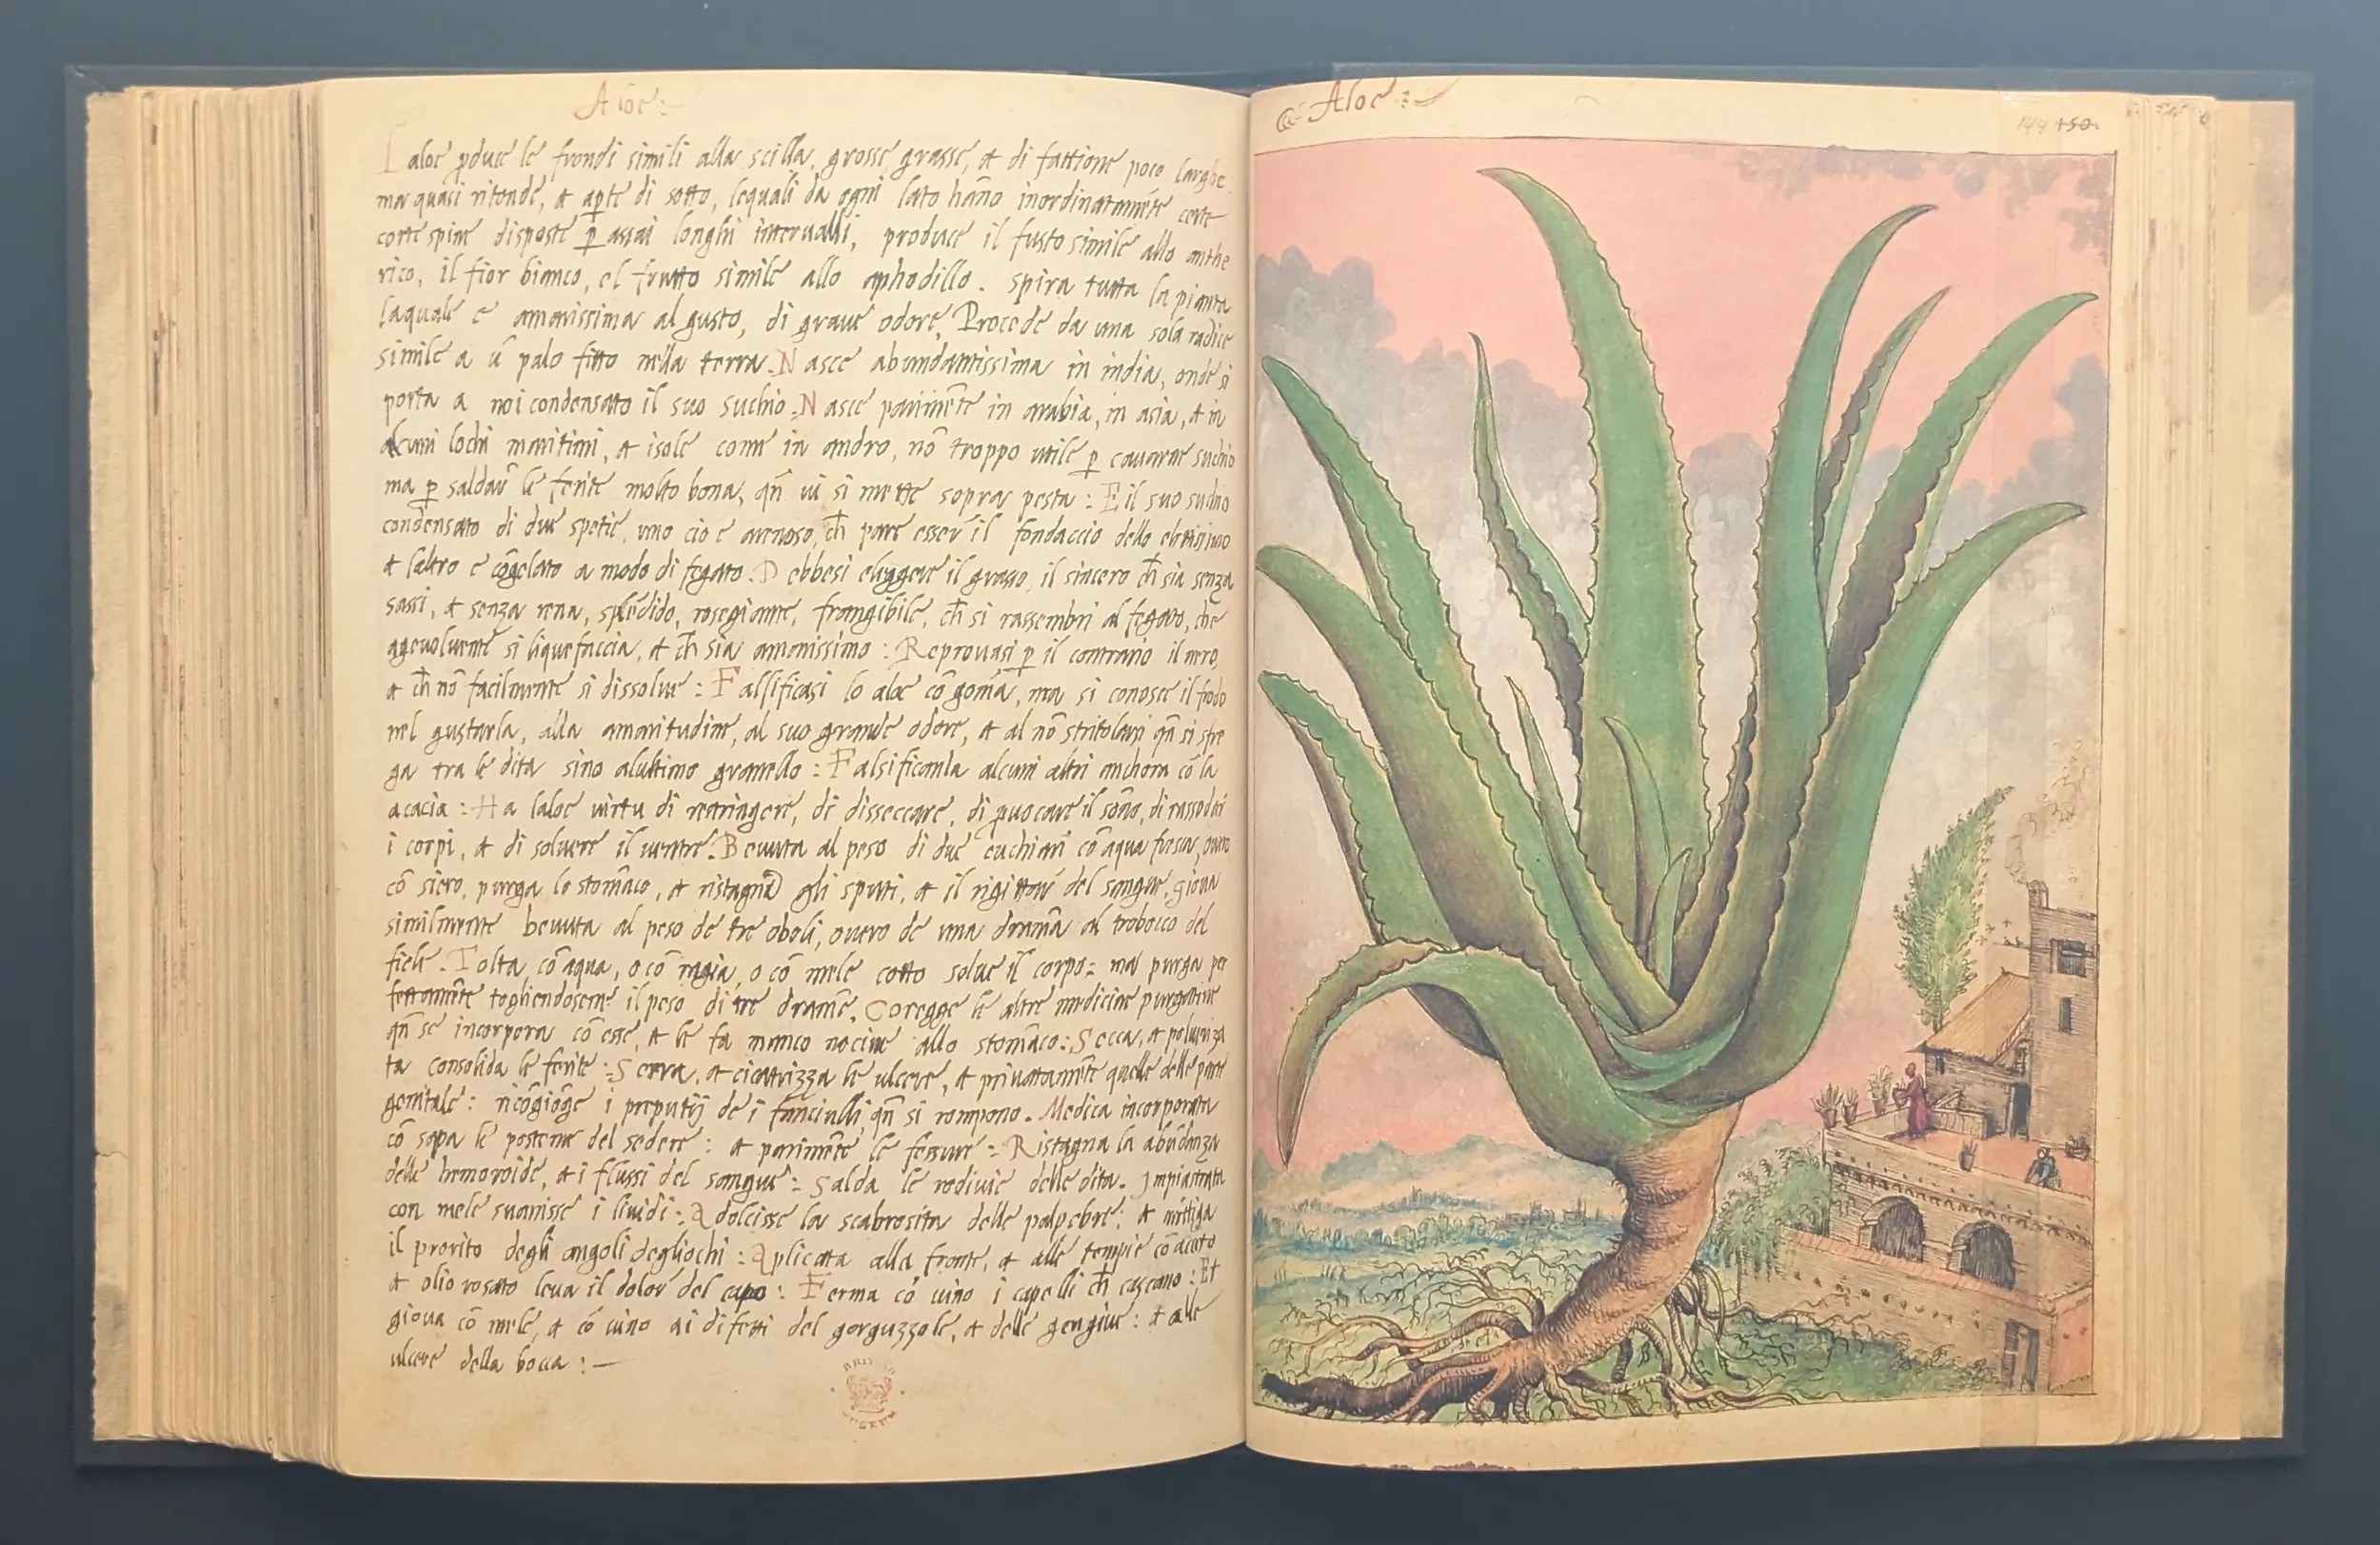 Aloe:
Laloe ꝓduce le frondi simili alla scilla, grosse, grasse, et di fattione poco larghe
ma quasi ritonde, et apte di sotto, lequali da ogni lato hãno inordinatamẽte certe
corte spine disposte ꝑ assai longhi interualli, produce il fusto simile allo anthe
rico, il fior bianco, el frutto simile allo aphodillo. Spira tutta la pianta
laquale e amarissima al gusto, di graue odore, Procede da una sola radice
simile a ũ palo fitto nella terra. Nasce abundantissima in india, onde si
porta a noi condensato il suo suchio. Nasce parimẽte in arabia, in asia, et in
alcuni lochi maritimi, et isole come in andro, nõ troppo utile ꝑ cauarne suchio
ma ꝑ saldar le ferite molto bona, qñ ui si mette sopra pesta: E il suo suchio
condensato di due spetie, uno cio e arenoso, ch̃ pare esser il fondaccio dello
et laltro e cõgelato a modo di fegato. Debbesi eleggere il grasso, il sincero ch̃ sia senza
sassi, et senza rena, splẽdido, rosegiante, frangibile, ch̃ si rassembri al fegato, che
ageuolmente si liquefaccia, et ch̃ sia amarissimo: Reprouasi ꝑ il contrario il nero,
et ch̃ nõ facilmente si dissolue: Falsificasi lo aloe cõ gomã, ma si conosce il frodo
nel gustarla, alla amaritudine, al suo grande odore, et al nõ stritolarsi qñ si sfre
ga tra le dita sino alultimo granello: Falsificanla alcuni altri anchora cõ la
acacia: Ha laloe uirtu di restringere, di disseccare, di ꝓuocare il sõno, di rassodar
i corpi, et di soluere il uentre. Beuuta al peso di due cuchiari cõ aqua fresca, ouero
cõ siero, purga lo stomãco, et ristagna gli sputi, et il rigittar del sangue, gioua
similmente beuuta al peso de tre oboli, ouero de una dramã al trobocco del
fiele. Tolta cõ aqua, o cõ ragia, o cõ mele cotto solue il corpo: ma purga per
fettamẽte togliendosene il peso di tre drame. Coregge le altre medicine purgatiue
qñ se incorpora cõ esse, et le fa manco nociue allo stomãco: Secca, et poluerizza
ta consolida le ferite: Serra, et cicatrizza le ulcere, et priuatamẽte quelle delle parti
genitale: ricõgiõge i preputij de i fanciulli, qñ si rompono. Medica incorporata
cõ sapa le posteme del sedere: et parimẽte le fessure: Ristagna la abũdanza
delle hemoroide, et i flussi del sangue: Salda le rediuie delle dita. Impiastrata
con mele suanisse i liuidi: Adolcisse la scabrosita delle palpebre: et mitiga
il prorito degli angoli degliochi: Aplicata alla fronte, et alle tempie cõ aceto
et olio rosato leua il dolor del capo: Ferma cõ uino i capelli ch̃ cascano: Et
gioua cõ mele, et cõ uino ai difetti del gorguzzole, et delle gengiue: et alle
ulcere della bocca:—
BRITISH MUSEUM
Aloe:
144 150